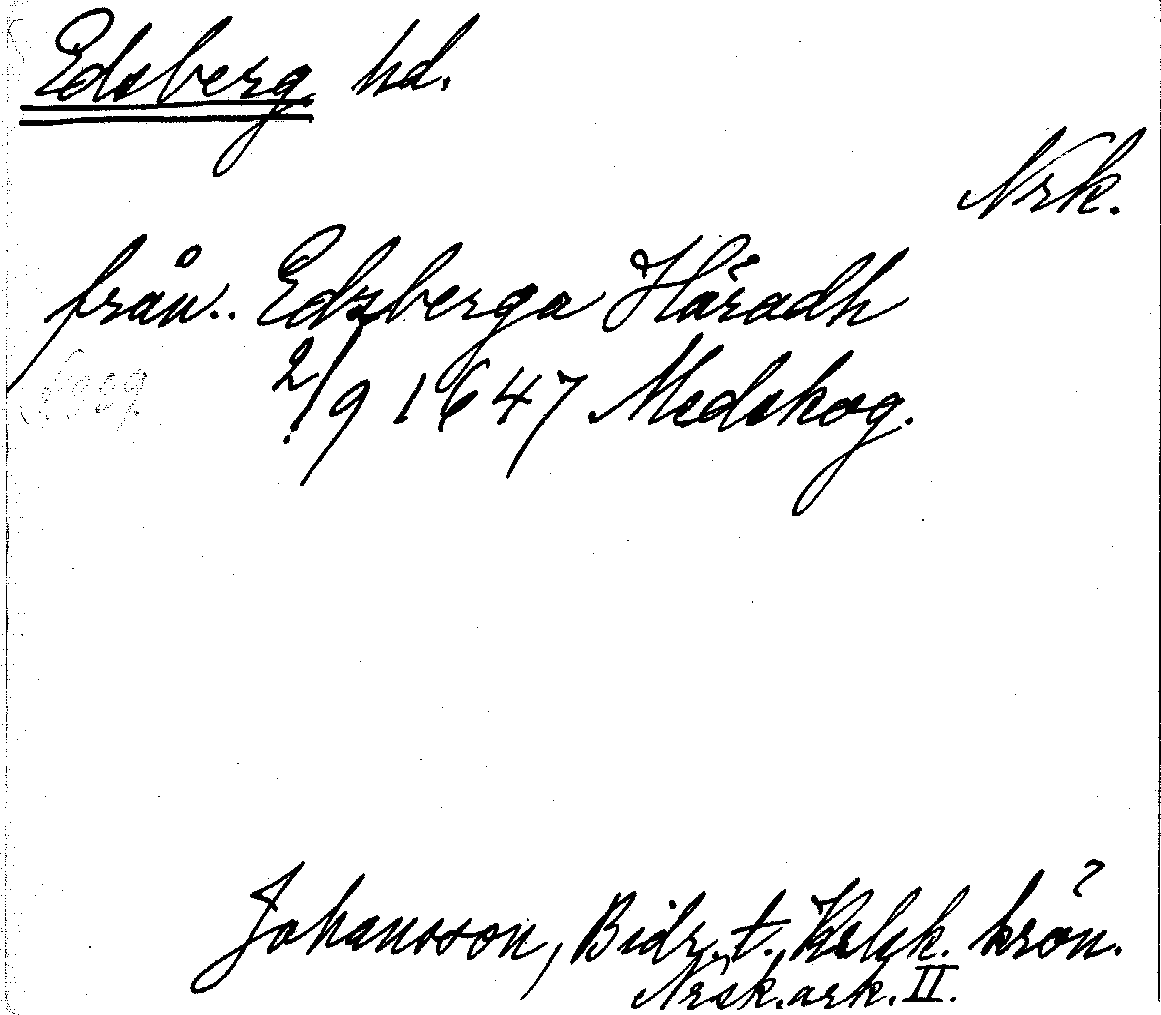 Edsberg hd.
Nrk.
från.. Edzberga Häradh
2/9 1647 Medskog.
Johansson, Bidr. t. krön.
Nrsk. ark. II.